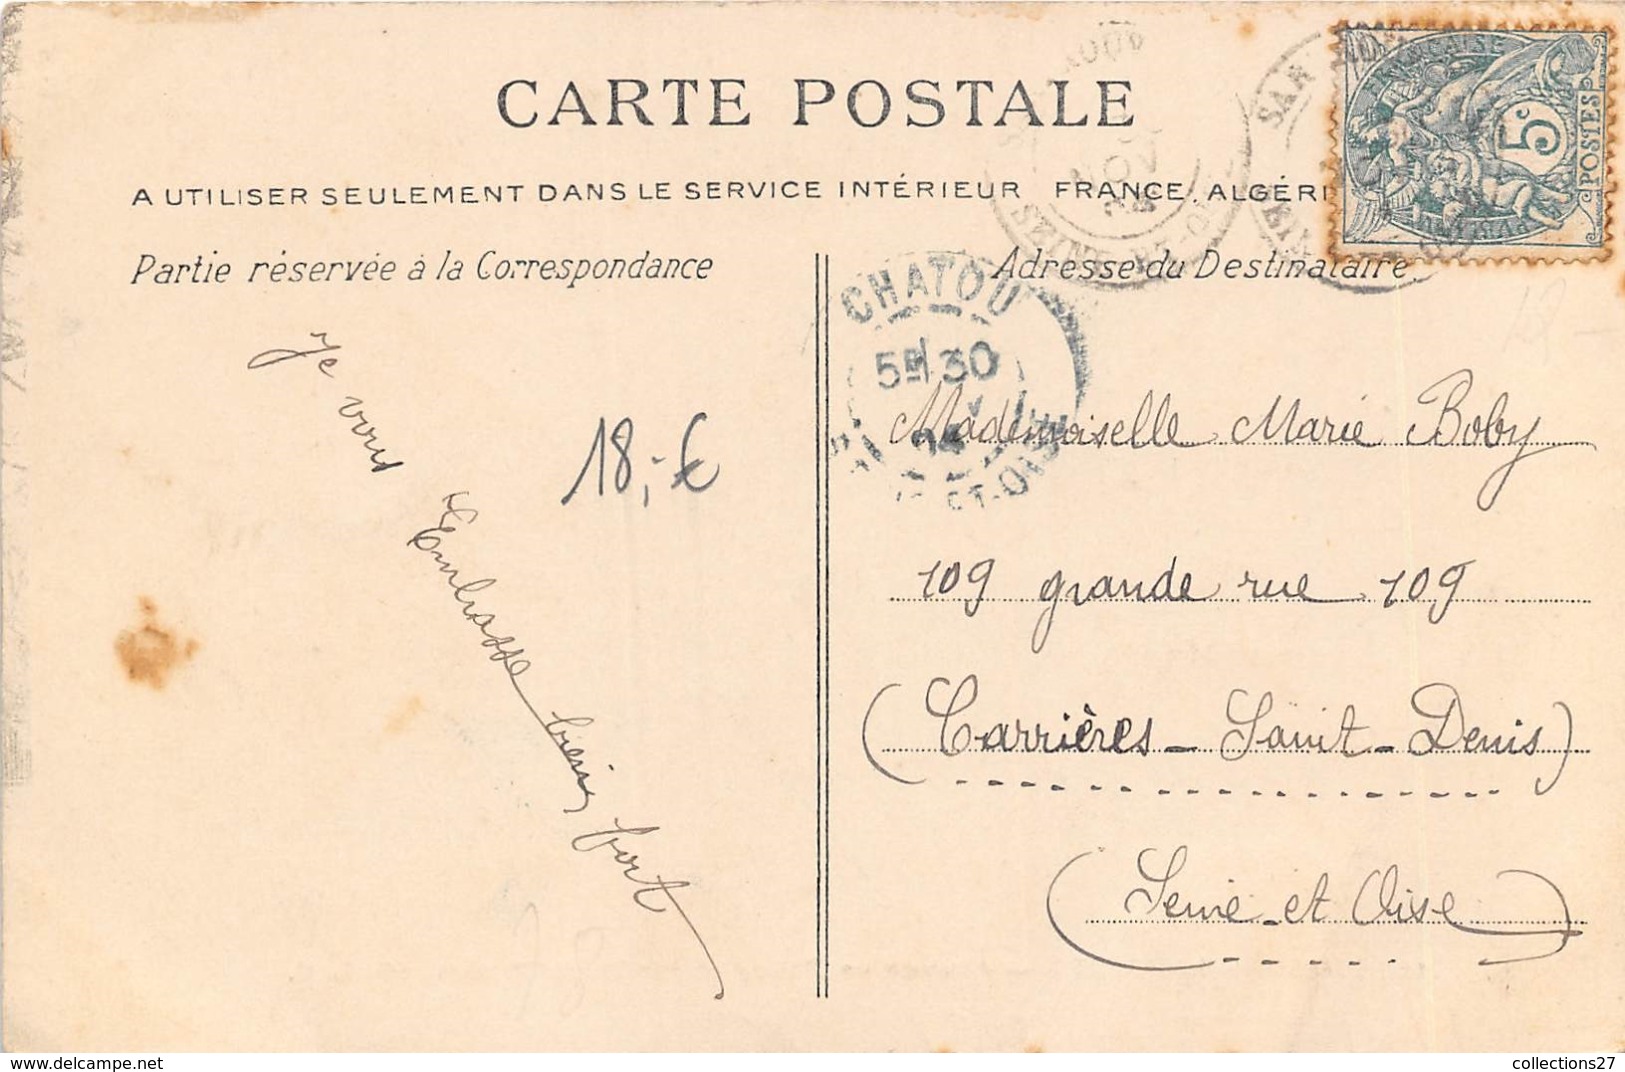 CARTE POSTALE
A UTILISER SEULEMENT DANS LE SERVICE INTÉRIEUR FRANCE, ALGÉRI
Partie réservée à la Correspondance
Adresse du Destinataire
Je vous
Embrasse bien
fort
18,-€
CHATOU
5E 30
ET-OISE
SAR
SEINE-ET-OI
NOV
FRANÇAISE
5c
POSTES
Mademoiselle Marie Boby
109 grande rue 109
(Carrières-Saint-Denis)
(Seine-et Oise)
78
18-
collections27